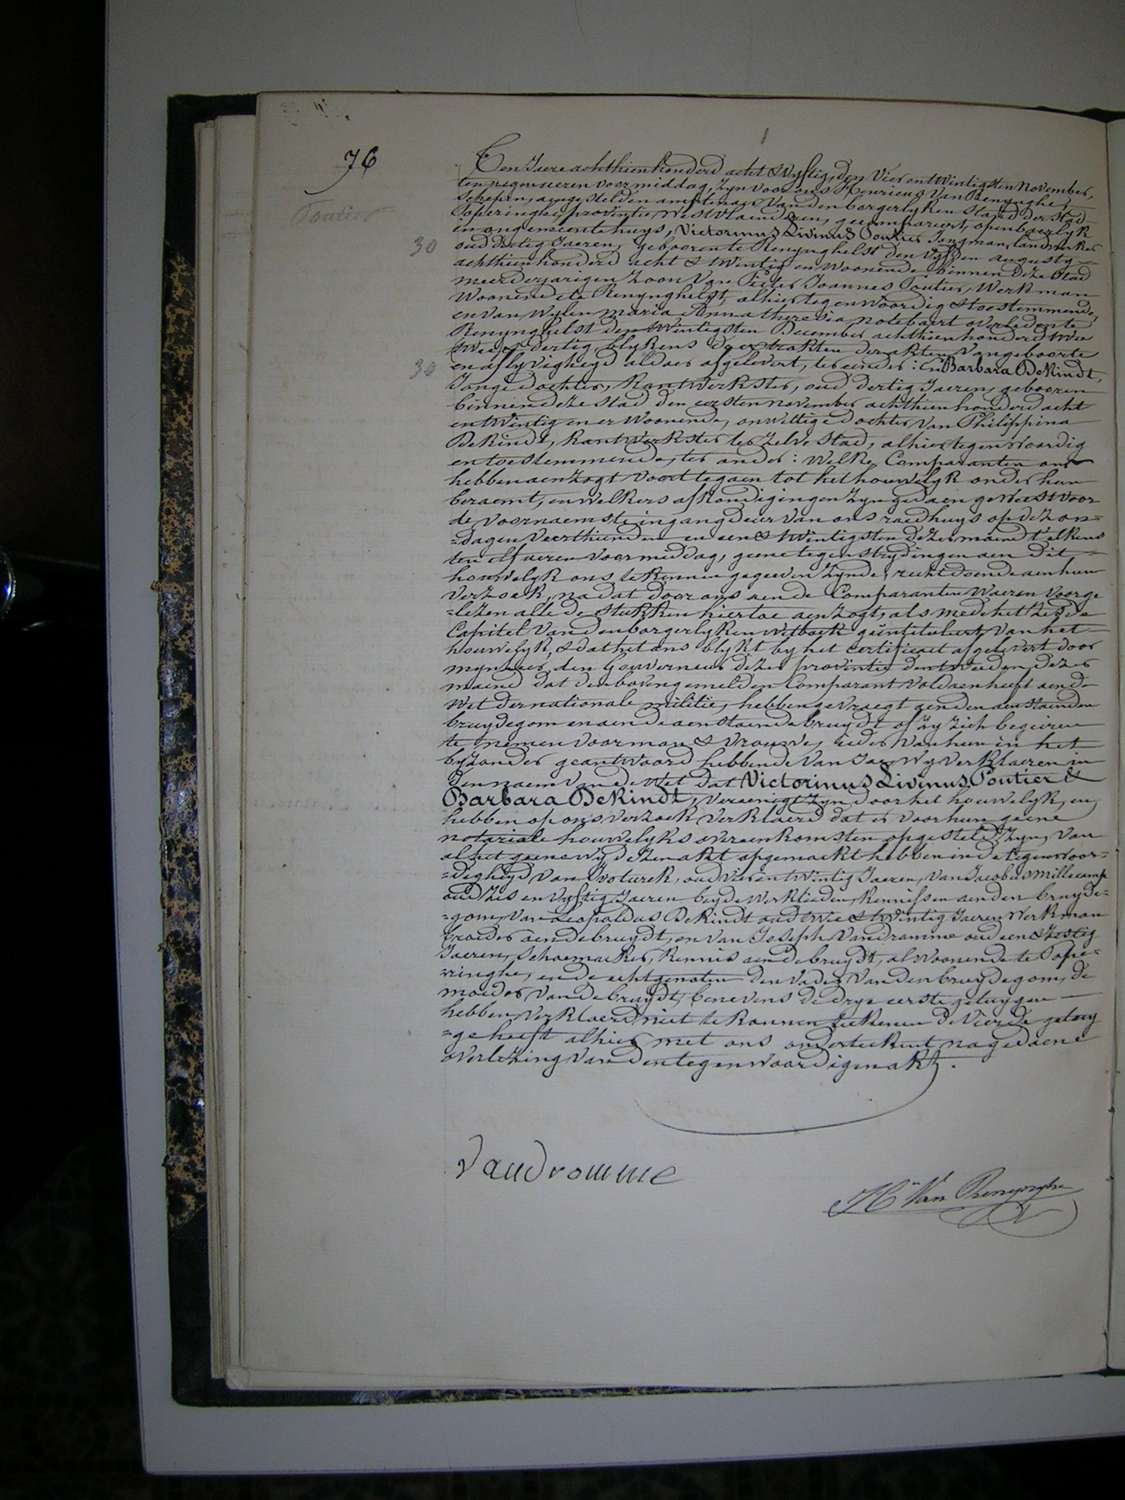 76
Ten Jaere achthien honderd acht & vyftig, den vier en twintigsten November,
ten negen ueren voormiddag, zyn voor ons Henricus Van Renynghe,
Schepen, aengestelden amptenaer van den borgerlyken stand der stad
Poperinghe, provintie Westvlaenderen, gecompareert, openbaerlyk
Poutier
en ons gemeentehuys, Victorinus Livinus Poutier Jongman, landwerker
30
oud dertig Jaeren, gebooren te Renynghelst den vyfden augusty
achthien honderd acht & twintig en woonende binnen deze stad
meerderjarigen zoon van Pieter Joannes Poutier, Werkman
Woonende te Renynghelst, alhier tegenwoordig & toestemmende,
en van Wylen maria Anna theresia notebaert overleden te
Renynghelst den twintigsten December achthien honderd
dertig blykens de extrakten der akten van geboorte
en aflyvigheyd aldaer afgelevert, ter eender: En Barbara DeKindt,
30
Jonge dochter, Kantwerkster, oud dertig Jaeren, gebooren
binnen deze stad den eersten november achthien honderd acht
en twintig en er woonende, onwettige dochter van Philippina
DeKindt, kantwerkster ter zelve stad, alhier tegenwoordig
en toestemmende, ter ander: Welke Comparanten ons
hebben aenzogt voort te gaen tot het houwelyk onder hun
beraemt, en welkers afkondigingen zyn gedaen geweest voor
de voornaemste ingangdeur van ons raedhuys op de zon-
-dagen veerthienden en een & twintigsten dezer maend t'elkens
ten elf ueren voormiddag, geene tegenstrydingen aen dit
houwelyk ons te kennen gegeven zynde, recht doende aen hun
verzoek, na dat door ons aen de Comparanten waeren voorge
-lezen alle de stukken hiertoe aenzogt, als mede het zesde
Capitel van den borgerlyken wetboek geintituleert van het
houwelyk, & dat het ons blykt by het certificaet afgelevert door
mynheer den Gouverneur dezer provintie den tweeden dezer
maend dat den bovengemelden Comparant voldaen heeft aen de
Wet der nationale militie, hebben gevraegt aen den aenstaenden
bruydegom en aen de aenstaende bruydt of zy zich begeiren
te nemen voor man & vrouwe, ieder van hun in het
byzonder geantwoord hebbende van Ja, wy verklaeren in
den naem van de wet dat Victorinus Livinus Poutier &
Barbara DeKindt, vereenigt zyn door het houwelyk, en
hebben op ons verzoek verklaerd dat er voor hun geene
notariale houwelyks overeenkomsten opgesteld zyn, van
al het geene wy dezen akt opgemaekt hebben in de tegenwoor-
-digheyd van oud vier en twintig Jaeren, van Jacobus Millecamp
oud zes en vyftig Jaeren beyde werklieden, kennissen aen den bruyde-
-gom, van Leopoldus DeKindt oud twee & twintig Jaeren werkman
broeder aen de bruydt, en van Joseph Vandromme oud een & zestig
Jaeren, Schoemaeker, kennis aen de bruydt, al woonende te Pope-
-ringhe, en de echtgenoten den vader van den bruydegom, de
moeder van de bruydt, benevens de drye eerste getuygen
hebben verklaerd niet te konnen teekenen de vierde getuyg
-ge heeft alhier met ons onderteekent na gedaene
voorlezing van den tegenwoordigen akt.
Vandromme
Hs Van Renynghe